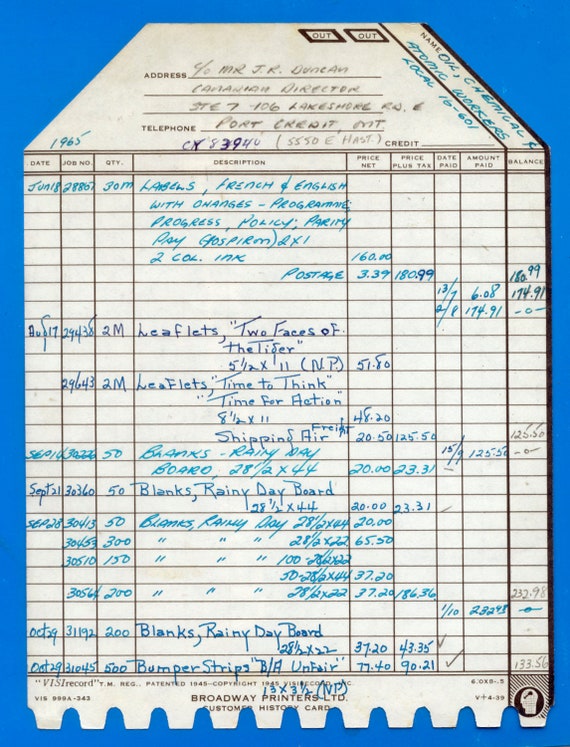 OUT OUT
NAME OIL, CHEMICAL &
ATOMIC WORKERS
LOCAL 16-601
ADDRESS c/o MR J.R. DUNCAN
CANADIAN DIRECTOR
STE 7 - 106 LAKESHORE RD. E
TELEPHONE PORT CREDIT, ONT
1965 CY 83940 (5550 E HAST.) CREDIT
DATE JOB NO. QTY. DESCRIPTION PRICE NET PRICE PLUS TAX DATE PAID AMOUNT PAID BALANCE
Jun 18 28867 30m LABELS, FRENCH & ENGLISH
WITH CHANGES - PROGRAMME;
PROGRESS, POLICY; PARITY
PAY (ASPIRIN) 2X1
2 COL. INK 160.00
POSTAGE 3.39 180.99 180.99
13/7 6.08 174.91
2/8 174.91 -0-
Aug 17 29438 2M Leaflets, "Two Faces of
the Tiger"
5 1/2 X 11 (NP) 51.80
29643 2M Leaflets, "Time to Think"
"Time For Action"
8 1/2 X 11 48.20
Shipping Air Freight 20.50 125.50 125.50
SEP 14 30226 50 BLANKS - RAINY DAY 15/9 125.50 -0-
BOARD, 28 1/2 X 44 20.00 23.31
Sept 21 30360 50 Blanks, Rainy Day Board
28 1/2 X 44 20.00 23.31
SEP 28 30413 50 BLANKS, RAINY DAY 28 1/2 X 44 20.00
30453 300 " " " 28 1/2 X 22 65.50
30510 150 " " " 100 - 28 1/2 X 22
50 - 28 1/2 X 44 37.20
30564 200 " " " 28 1/2 X 22 37.20 186.36 232.98
1/10 232.98 -0-
Oct 29 31192 200 Blanks, Rainy Day Board
28 1/2 X 22 37.20 43.35
Oct 29 31045 500 Bumper Strips "B/A Unfair" 77.40 90.21 133.56
13 X 3 1/2 (NP)
"VISIrecord" T.M. REG., PATENTED 1945-COPYRIGHT 1945 VISIRECORD, INC. 6.0X8-.5
VIS 999A-343 BROADWAY PRINTERS LTD. V+4-39
CUSTOMER HISTORY CARD